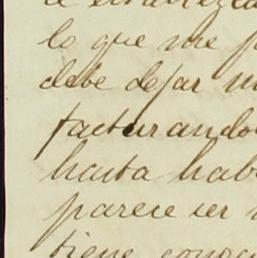 lo que me
debe dejar
facturando
hasta hab
parece ser
tiene conoc